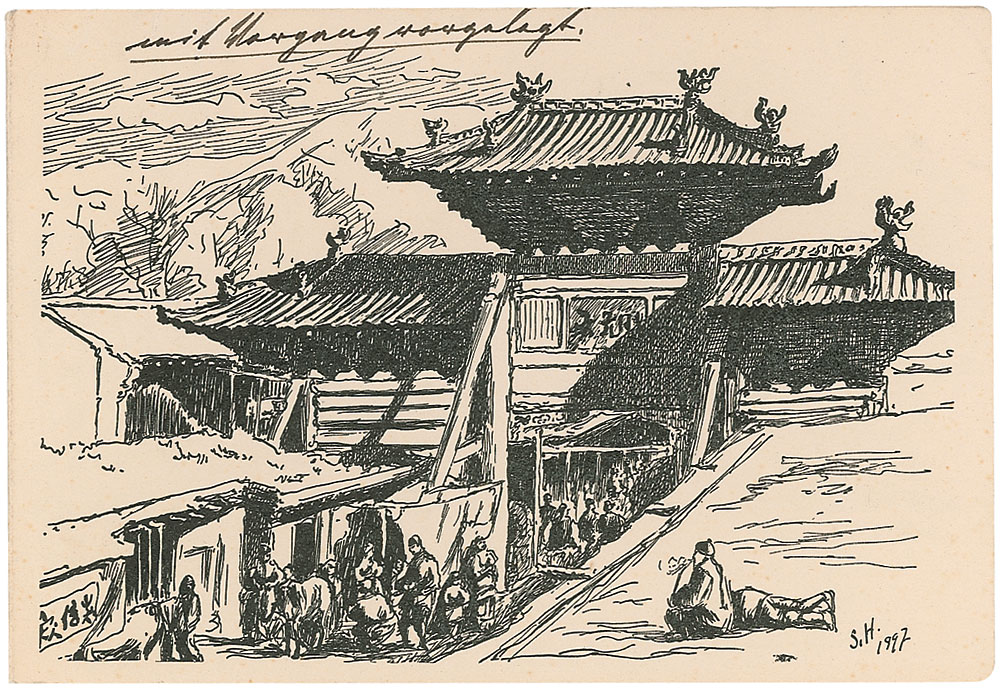 mit Vorgang vorgelegt.
S.H. 1897